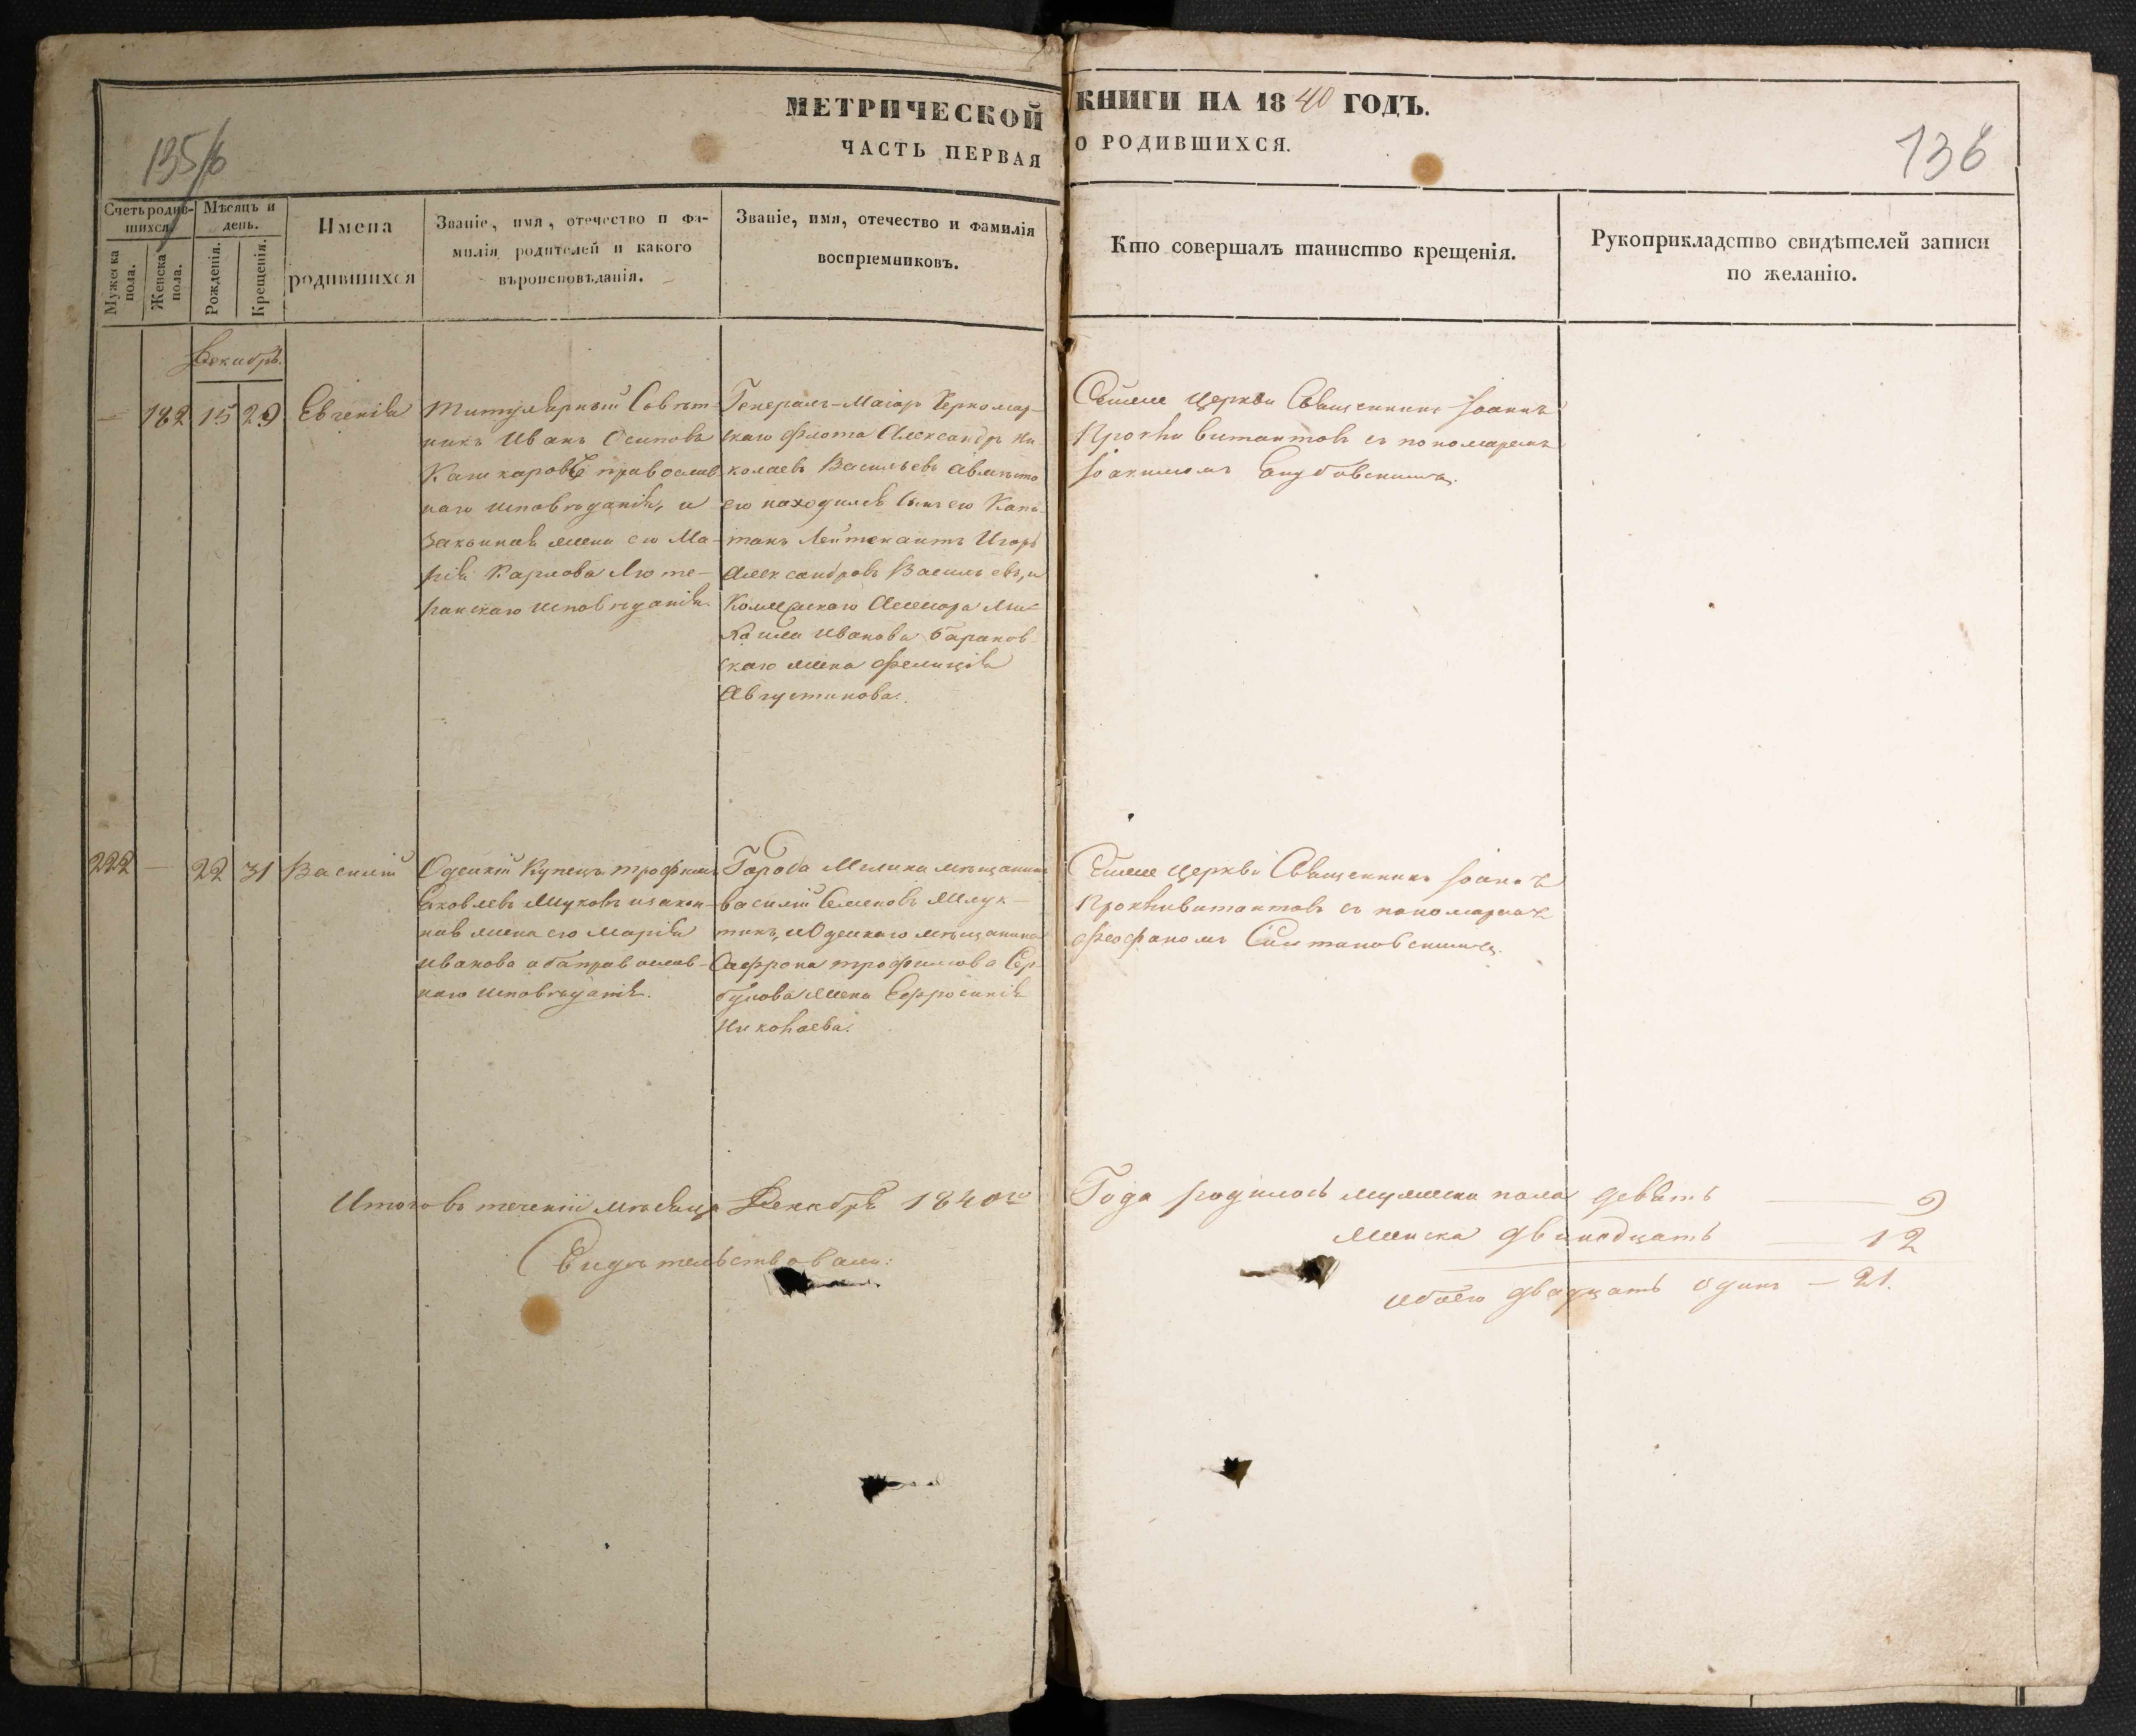 МЕТРИЧЕСКОЙ
ЧАСТЬ ПЕРВАЯ
КНИГИ НА 1840 ГОДЪ.
О РОДИВШИХСЯ.
135/б
136
Счетъ родив-
шихся.
Мужеска
пола.
Женска
пола.
Мѣсяцъ и
день.
Рожденія.
Крещенія.
Имена
родившихся
Званіе, имя, отечество и фа-
милія родителей и какого
вѣроисповѣданія.
Званіе, имя, отечество и фамилія
воспріемниковъ.
Кто совершалъ таинство крещенія.
Рукоприкладство свидѣтелей записи
по желанію.
Декабрь.
— 182 15 29 Евгенія
Титулярный Совѣт-
никъ Иванъ Осиповъ
православ
наго исповѣданія, и
законная жена его Ма-
рія Карлова Люте-
ранскаго исповѣданія.
Генералъ-Маіоръ Черномор-
скаго флота Александръ Ни
колаевъ Васильевъ а вмѣсто
его находился сынъ его Капи
танъ Лейтенантъ Игорь
Александровъ Васильевъ, и
Ассесора Ми-
хаила Иванова Баранов
скаго жена Фелиція
Августинова.
церкви Священникъ Іоаннъ
съ пономаремъ
Іоакимомъ
222 — 22 31 Василій
Одескій Купецъ Трофимъ
Яковлевъ Жуковъ и закон-
ная жена его Марія
Иванова оба православ-
наго исповѣданія.
Города мѣщанинъ
Василій Семеновъ
и Одескаго мѣщанина
Сафрона Трофимова
жена Евфросинія
Николаева.
церкви Священникъ Іоаннъ
съ пономаремъ
Феофаномъ
Итого въ теченіи мѣсяца Декабря 1840го
Года родилось мужеска пола девять — 9
женска двенадцать — 12
обоего двадцать одинъ — 21.
Свидѣтельствовали: